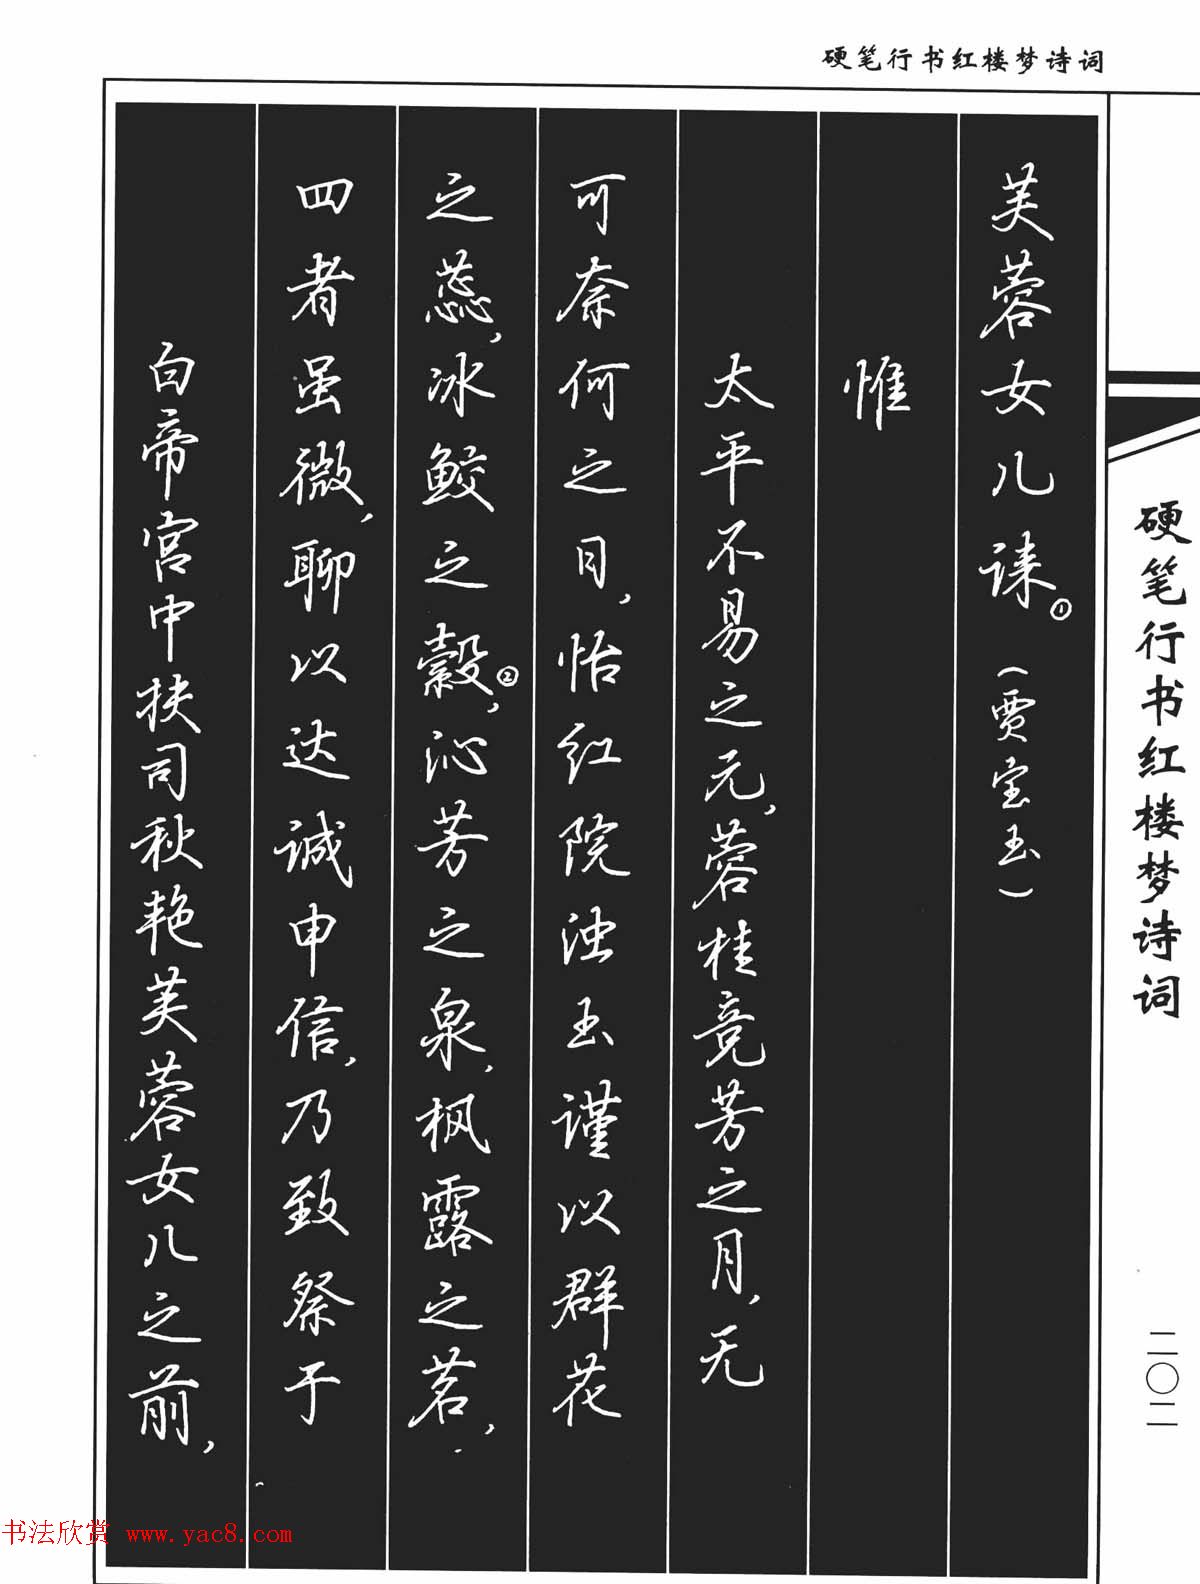 硬笔行书红楼梦诗词
芙蓉女儿诔①（贾宝玉）
惟
太平不易之元，蓉桂竞芳之月，无
可奈何之日，怡红院浊玉谨以群花
之蕊，冰鲛之縠②，沁芳之泉，枫露之茗，
四者虽微，聊以达诚申信，乃致祭于
白帝宫中抚司秋艳芙蓉女儿之前，
硬笔行书红楼梦诗词
二〇二
书法欣赏 www.yac8.com